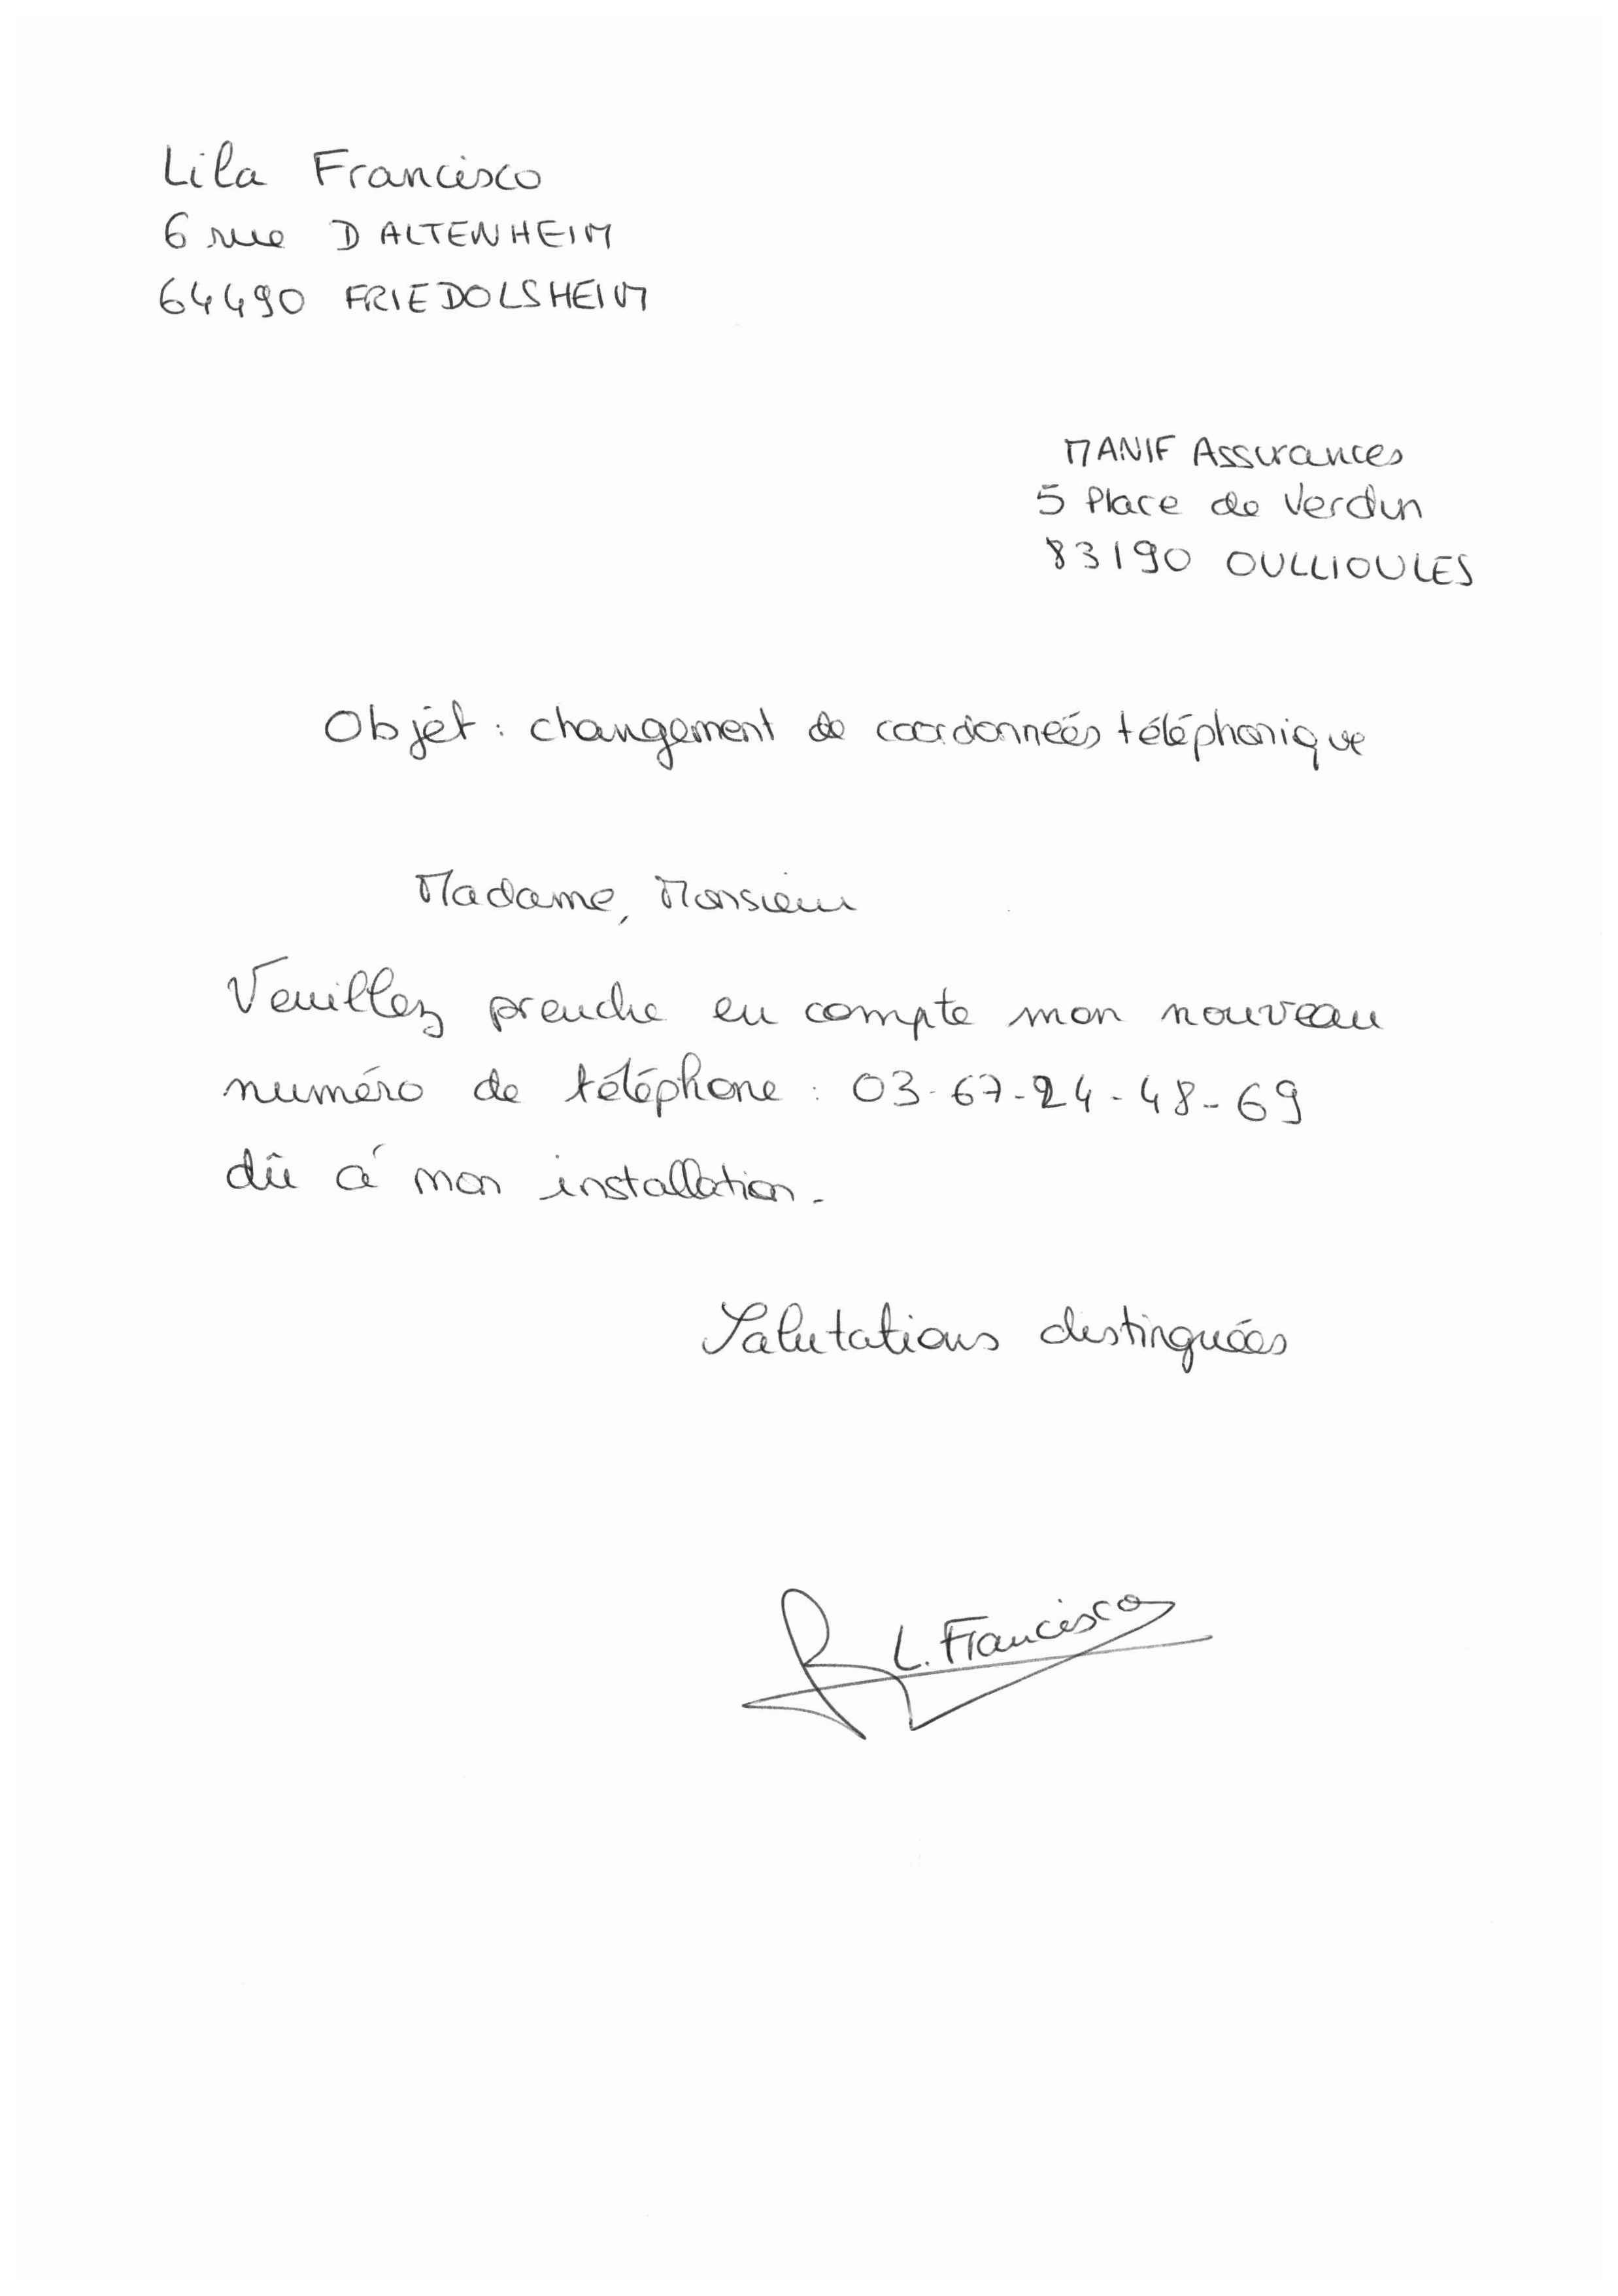 Lila Francisco
6 rue D ALTENHEIM
64490 FRIEDOLSHEIM
MANIF Assurances
5 Place de Verdun
83190 OULLIOULES
Objet : changement de coordonneés téléphonique
Madame, Monsieur
Veuillez prendre en compte mon nouveau
numéro de téléphone : 03-67-24-48-69
dû á mon installation.
Salutations distinguées
L. Francisco